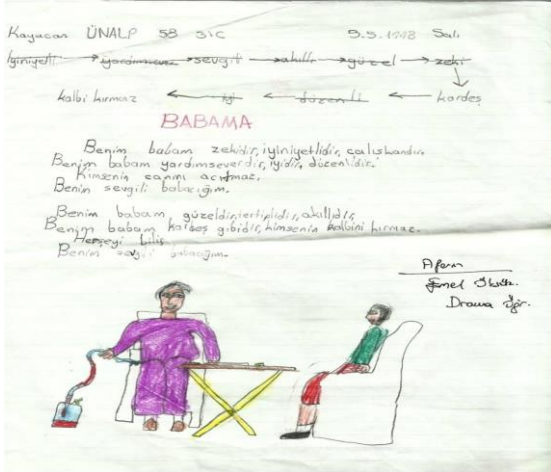 Kayacan ÜNALP 58 3/C 5.5.1998 Salı
iyiniyetli yardımsever sevgili akıllı güzel zeki
kalbi kırmaz iyi düzenli kardeş
BABAMA
Benim babam zekidir, iyiniyetlidir, çalışkandır.
Benim babam yardımseverdir, iyidir, düzenlidir.
Kimsenin canını acıtmaz.
Benim sevgili babacığım.
Benim babam güzeldir, tertiplidir, akıllıdır,
Benim babam kardeş gibidir, kimsenin kalbini kırmaz.
Herşeyi bilir
Benim sevgili babacığım.
Aferin
Emel
Drama Öğr.